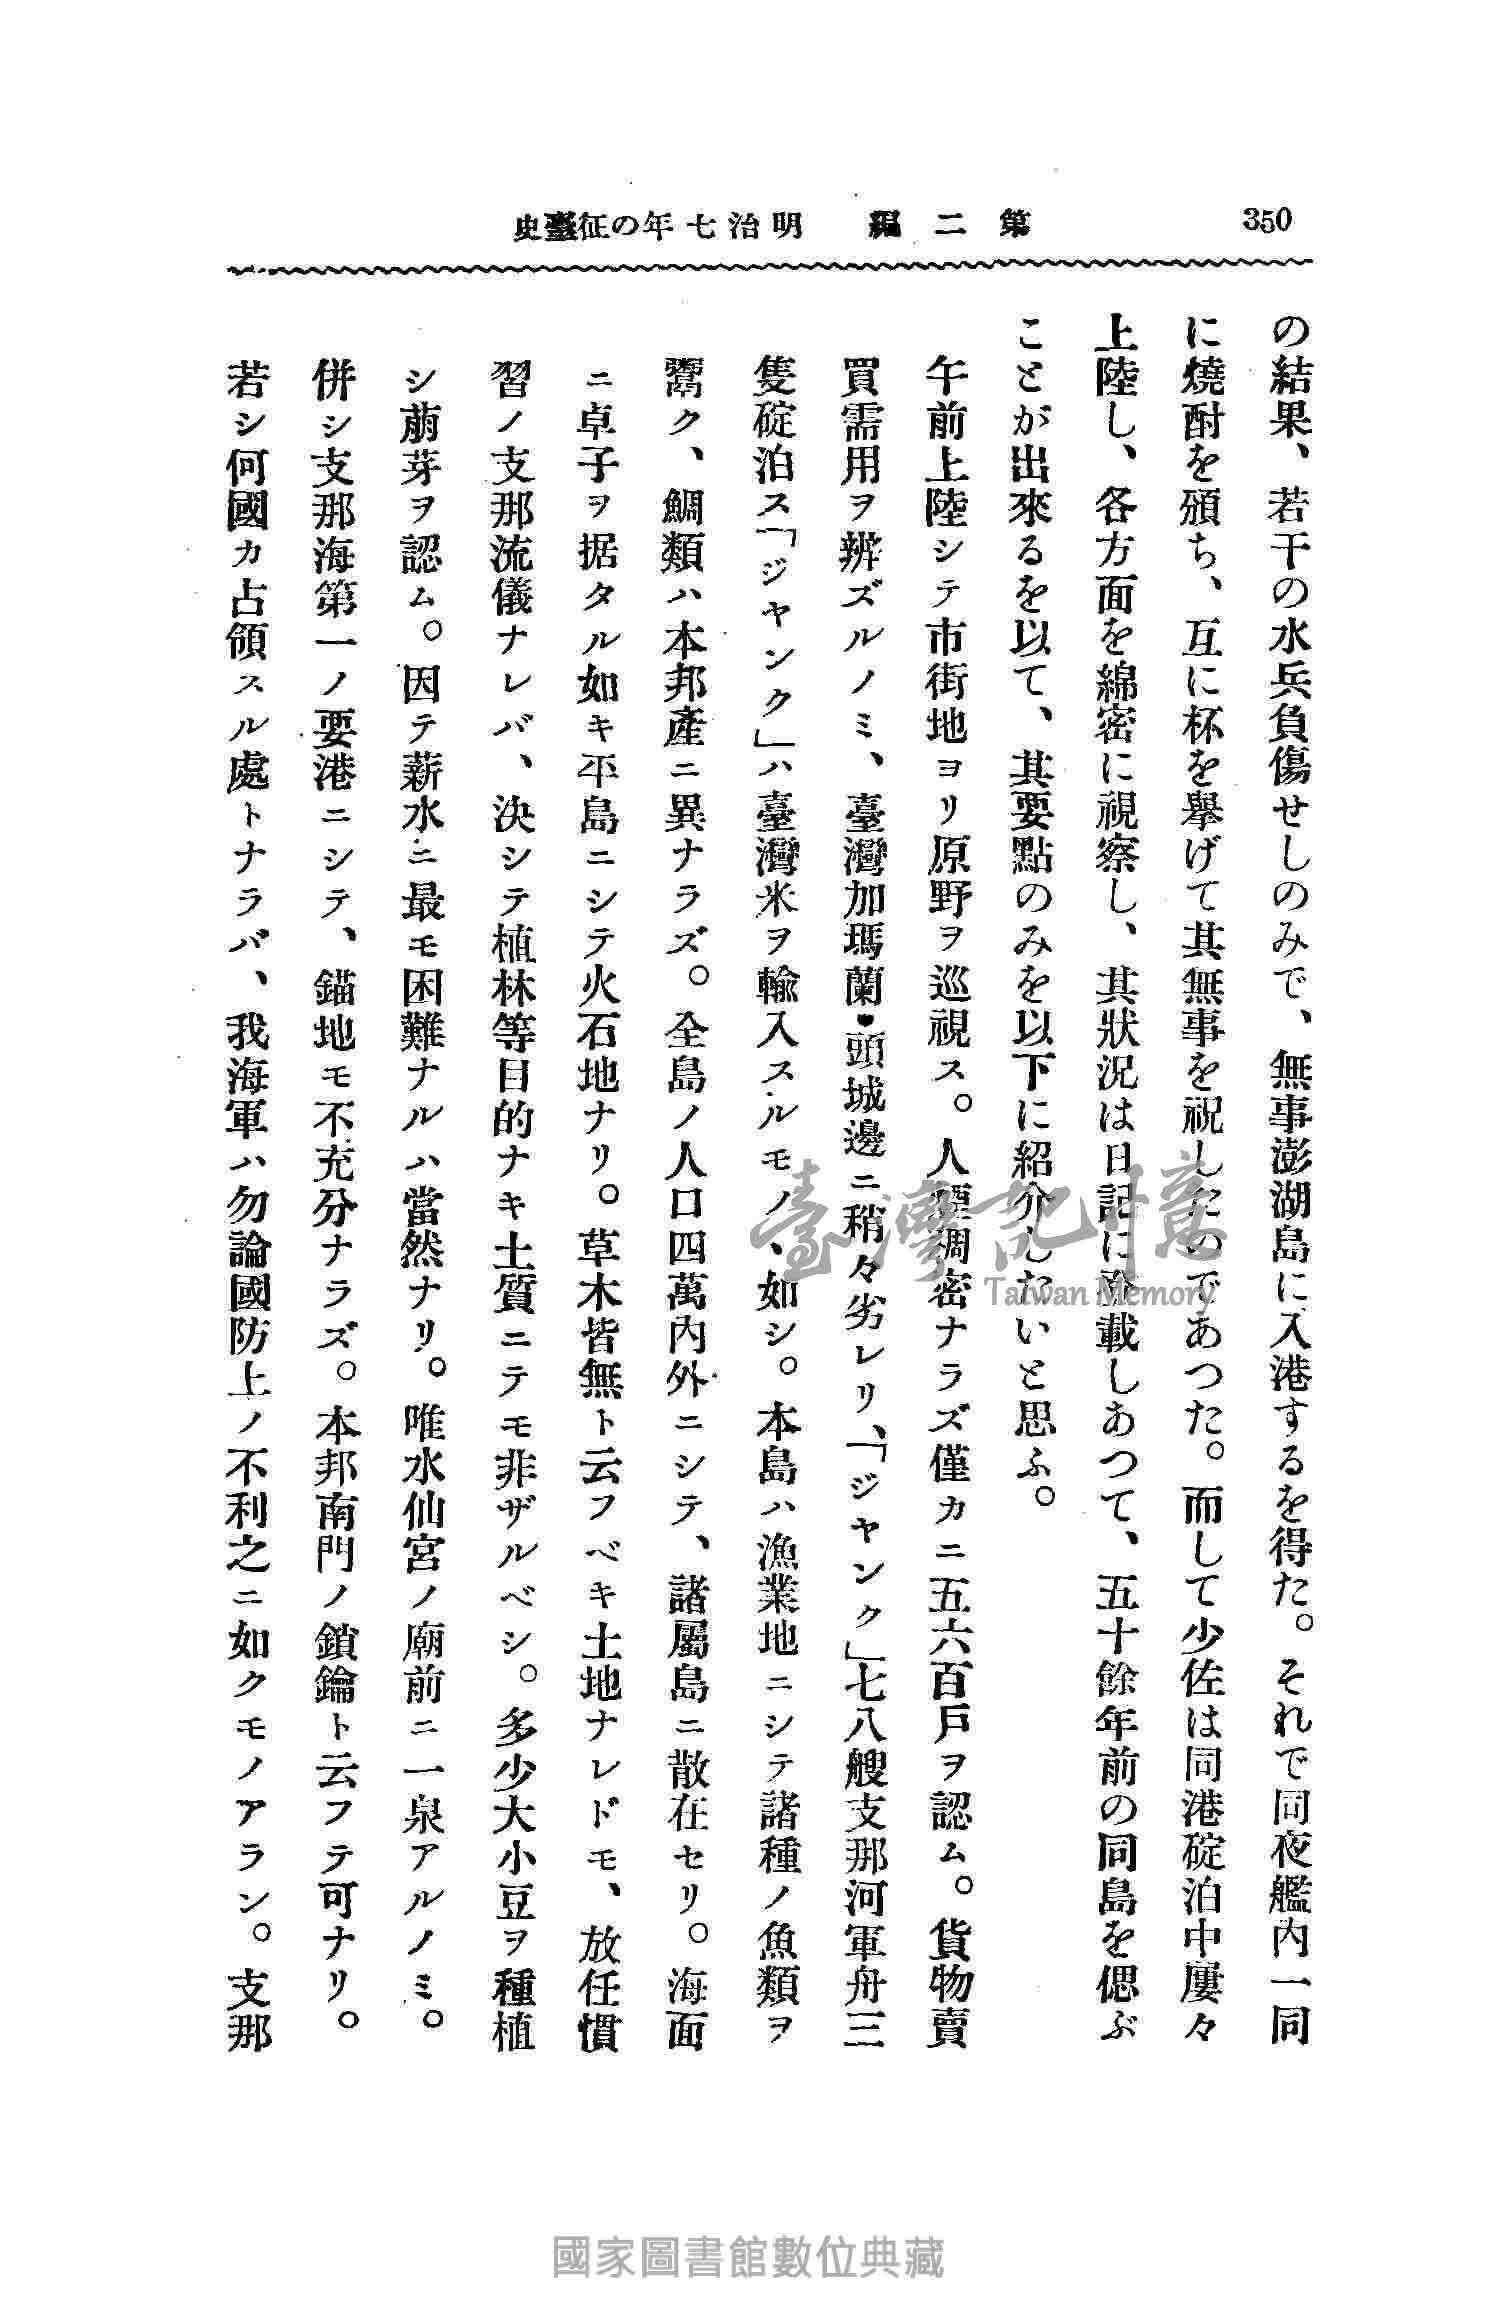 350
第二編　明治七年の征臺史
の結果、若干の水兵負傷せしのみで、無事澎湖島に入港するを得た。それで同夜艦内一同
に燒酎を頒ち、互に杯を擧げて其無事を祝したのであつた。而して少佐は同港碇泊中屢々
上陸し、各方面を綿密に視察し、其狀況は日記に登載しあつて、五十餘年前の同島を偲ぶ
ことが出來るを以て、其要點のみを以下に紹介したいと思ふ。
午前上陸シテ市街地ヨリ原野ヲ巡視ス。人煙稠密ナラズ僅カニ五六百戶ヲ認ム。貨物賣
買需用ヲ辨ズルノミ、臺灣加瑪蘭・頭城邊ニ稍々劣レリ、「ジヤンク」七八艘支那河軍舟三
隻碇泊ス「ジヤンク」ハ臺灣米ヲ輸入スルモノヽ如シ。本島ハ漁業地ニシテ諸種ノ魚類ヲ
鬻ク、鯛類ハ本邦產ニ異ナラズ。全島ノ人口四萬內外ニシテ、諸屬島ニ散在セリ。海面
ニ卓子ヲ据タル如キ平島ニシテ火石地ナリ。草木皆無ト云フベキ土地ナレドモ、放任慣
習ノ支那流儀ナレバ、決シテ植林等目的ナキ土質ニテモ非ザルベシ。多少大小豆ヲ種植
シ萠芽ヲ認ム。因テ薪水ニ最モ困難ナルハ當然ナリ。唯水仙宮ノ廟前ニ一泉アルノミ。
併シ支那海第一ノ要港ニシテ、錨地モ不充分ナラズ。本邦南門ノ鎖鑰ト云フテ可ナリ。
若シ何國カ占領スル處トナラバ、我海軍ハ勿論國防上ノ不利之ニ如クモノアラン。支那
臺灣記憶
Taiwan Memory
國家圖書館數位典藏